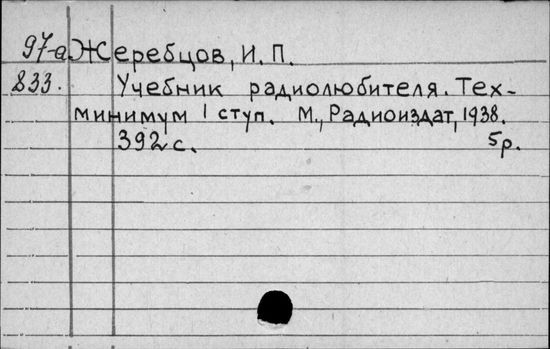 97-а Жеребцов, И. П.
833. Учебник радиолюбителя. Тех-
минимум I ступ. М., Радиоиздат, 1938.
392 с. 5р.